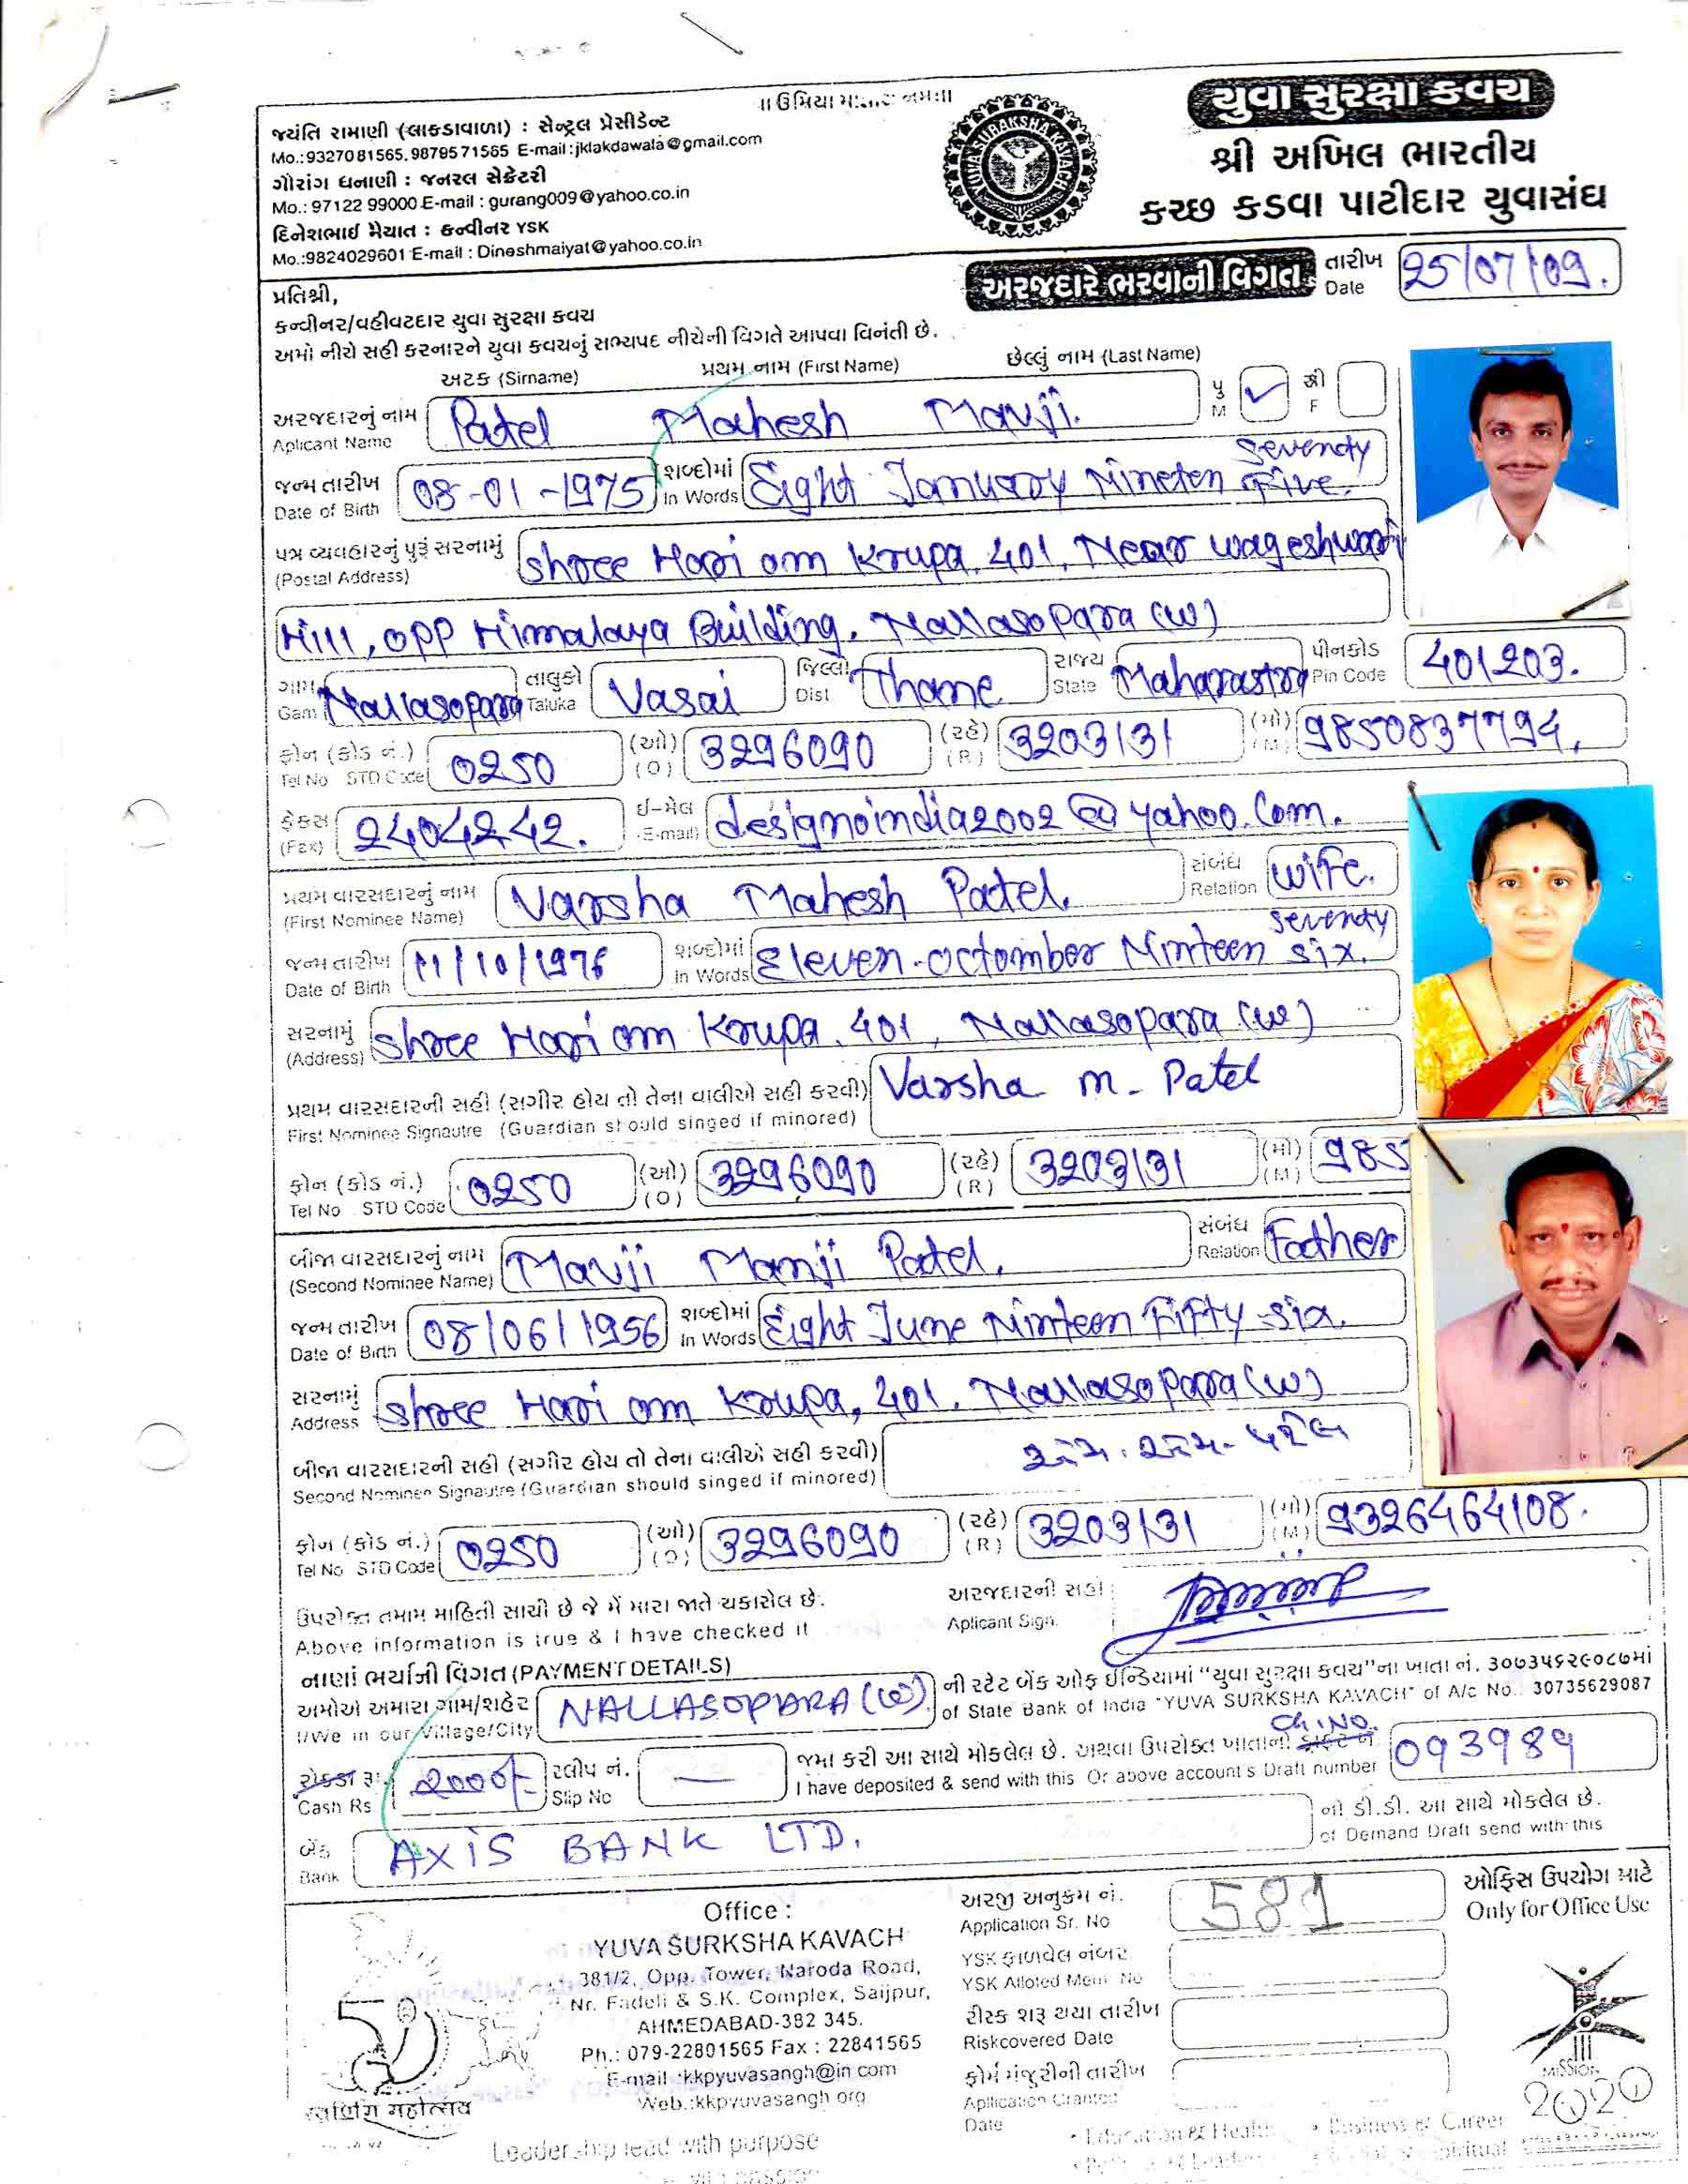 યુવા સુરક્ષા કવચ
શ્રી અખિલ ભારતીય
કચ્છ કડવા પાટીદાર યુવાસંઘ
YUVA SURAKSHA KAVACH
જયંતિ રામાણી (લાકડાવાળા) : સેન્ટ્રલ પ્રેસીડેન્ટ
Mo.:9327081565, 9879571565 E-mail :jklakdawala@gmail.com
ગૌરાંગ ધનાણી : જનરલ સેક્રેટરી
Mo.: 97122 99000 E-mail : gurang009@yahoo.co.in
દિનેશભાઈ મૈયાત : કન્વીનર YSK
Mo.:9824029601 E-mail : Dineshmaiyat@yahoo.co.in
અરજદારે ભરવાની વિગત તારીખ Date 25/07/09.
પ્રતિશ્રી,
કન્વીનર/વહીવટદાર યુવા સુરક્ષા કવચ
અમો નીચે સહી કરનારને યુવા કવચનું સભ્યપદ નીચેની વિગતે આપવા વિનંતી છે.
અટક (Sirname) પ્રથમ નામ (First Name) છેલ્લું નામ (Last Name)
અરજદારનું નામ Aplicant Name Patel Mahesh Mavji. પુ M ✓ સ્રી F
જન્મ તારીખ Date of Birth 08-01-1975 શબ્દોમાં In Words Eight January Nineten Sevendy Five.
પત્ર વ્યવહારનું પુરૂં સરનામું (Postal Address) Shree Hari om Krupa. 401, Near wageshwari
Hill, opp Himalaya Building, Nallasopara (w)
ગામ Gam Nallasopara તાલુકો Taluka Vasai જિલ્લો Dist Thane રાજ્ય State Maharastra પીનકોડ Pin Code 401203.
ફોન (કોડ નં.) Tel No STD Code 0250 (ઓ) (O) 3296090 (રહે) (R) 3203131 (મો) (M) 9850837794.
ફેક્સ (Fax) 2404242. ઈ-મેલ E-mail) designoindia2002@yahoo.com.
પ્રથમ વારસદારનું નામ (First Nominee Name) Varsha Mahesh Patel. સંબંધ Relation wife.
જન્મ તારીખ Date of Birth 11/10/1976 શબ્દોમાં In Words Eleven-octomber Ninteen Sevendy six.
સરનામું (Address) Shree Hari om Krupa, 401, Nallasopara (w)
પ્રથમ વારસદારની સહી (સગીર હોય તો તેના વાલીએ સહી કરવી) Varsha m. Patel
First Nominee Signautre (Guardian should singed if minored)
ફોન (કોડ નં.) Tel No STD Code 0250 (ઓ) (O) 3296090 (રહે) (R) 3203131 (મો) (M) 985
બીજા વારસદારનું નામ (Second Nominee Name) Mavji Manji Patel. સંબંધ Relation Father
જન્મ તારીખ Date of Birth 08/06/1956 શબ્દોમાં In Words Eight June Ninteen Fifty six.
સરનામું Address Shree Hari om Krupa, 401, Nallasopara (w)
બીજા વારસદારની સહી (સગીર હોય તો તેના વાલીએ સહી કરવી)
Second Nominee Signautre (Guardian should singed if minored)
ફોન (કોડ નં.) Tel No STD Code 0250 (ઓ) (O) 3296090 (રહે) (R) 3203131 (મો) (M) 9326464108.
ઉપરોક્ત તમામ માહિતી સાચી છે જે મેં મારા જાતે ચકાસેલ છે. અરજદારની સહી :
Above information is true & I have checked it Aplicant Sign.
નાણાં ભર્યાની વિગત (PAYMENT DETAILS)
અમોએ અમારા ગામ/શહેર NALLASOPARA (W) ની સ્ટેટ બેંક ઓફ ઈન્ડિયામાં "યુવા સુરક્ષા કવચ"ના ખાતા નં. ૩૦૭૩૫૬૨૯૦૮૭માં
I/We in our Village/City of State Bank of India "YUVA SURKSHA KAVACH" of A/c No. 30735629087
રોકડા રૂ. Cash Rs 2000/- સ્લીપ નં. Slip No — જમા કરી આ સાથે મોકલેલ છે. અથવા ઉપરોક્ત ખાતાનો ડ્રાફ્ટ નં Ch. No. 093989
I have deposited & send with this Or above account s Draft number
બેંક Bank AXIS BANK LTD. નો ડી.ડી. આ સાથે મોકલેલ છે.
of Demand Draft send with this
Office :
YUVA SURKSHA KAVACH
381/2, Opp. Tower, Naroda Road,
Nr. Fadeli & S.K. Complex, Saijpur,
AHMEDABAD-382 345.
Ph.: 079-22801565 Fax : 22841565
E-mail :kkpyuvasangh@in.com
Web.:kkpyuvasangh.org
અરજી અનુક્રમ નં. Application Sr. No 581
YSK ફાળવેલ નંબર YSK Alloted Mem No
રીસ્ક શરૂ થયા તારીખ Riskcovered Date
ફોર્મ મંજુરીની તારીખ Apllication Granted Date
ઓફિસ ઉપયોગ માટે
Only for Office Use
MISSION
2020
50
Leadership lead with purpose
• Education & Health • Business & Career